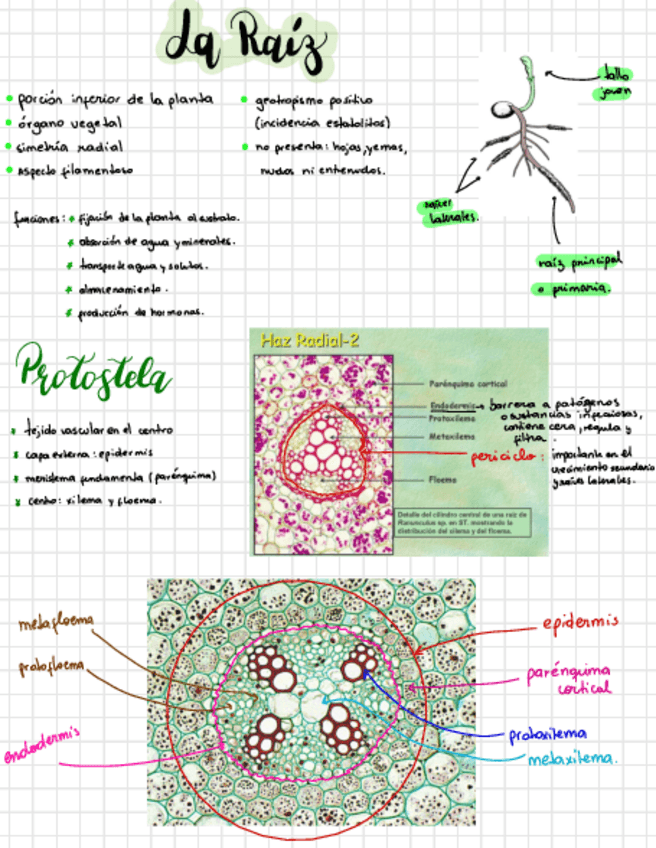 La Raíz
• porción inferior de la planta
• órgano vegetal
• simetría radial
• aspecto filamentoso
• geotropismo positivo
(incidencia estatolitos)
• no presenta: hojas, yemas,
nudos ni entrenudos.
tallo
joven
raíces
laterales.
raíz principal
o primaria.
funciones: * fijación de la planta al sustrato.
* absorción de agua y minerales.
* transporte agua y solutos.
* almacenamiento.
* producción de hormonas.
Protostela
* tejido vascular en el centro
* capa externa: epidermis
* meristema fundamental (parénquima)
* centro: xilema y floema.
Haz Radial-2
Parénquima cortical
Endodermis → barrera a patógenos
o sustancias infecciosas,
contiene cera, regula y
filtra.
Protoxilema
Metaxilema
periciclo: importante en el
crecimiento secundario
y raíces laterales.
Floema
Detalle del cilindro central de una raíz de
Ranunculus sp. en ST, mostrando la
distribución del xilema y del floema.
metafloema
protofloema
endodermis
epidermis
parénquima
cortical
protoxilema
metaxilema.